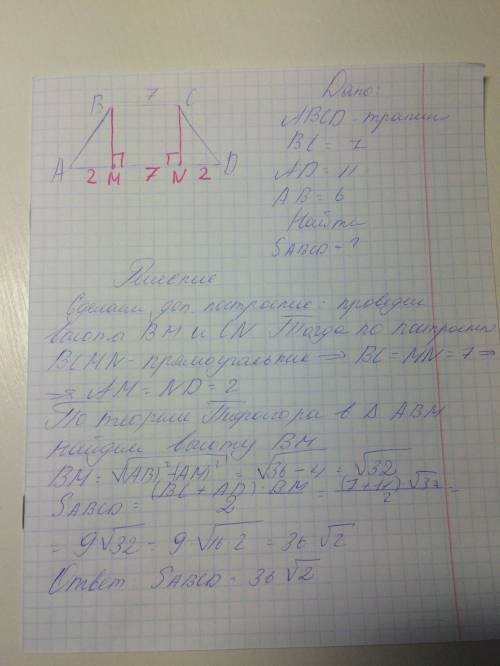 7
B C
A D
2 M 7 N 2
Дано:
ABCD - трапец
BC = 7
AD = 11
AB = 6
Найти
SABCD - ?
Решение
Сделаем доп построение: проведем
высоты BM и CN Тогда по построению
BCMN - прямоугольник ⇒ BC = MN = 7 ⇒
⇒ AM = ND = 2
По теореме Пифагора в Δ ABM
найдем высоту BM
BM = √(AB)² - (AM)² = √36 - 4 = √32
SABCD = (BC + AD) · BM / 2 = (7+11) √32 / 2 =
= 9√32 = 9√16·2 = 36√2
Ответ SABCD - 36√2